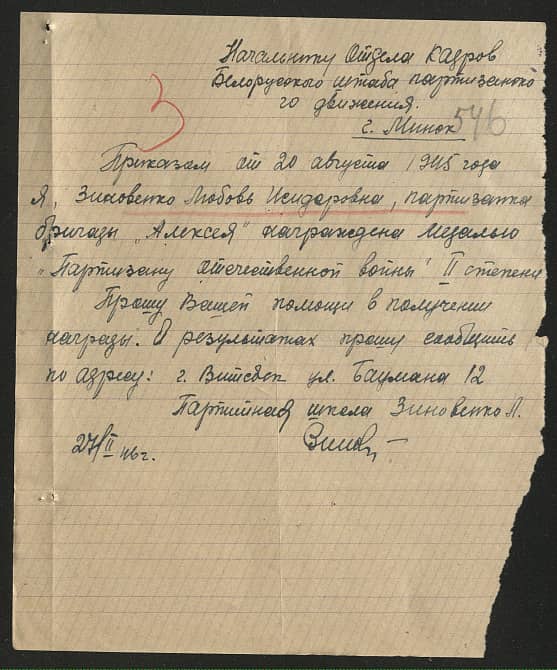 Начальнику Отдела Кадров
Белорусского штаба партизанско
го движения.
г. Минск 546
3
Приказам от 20 августа 1945 года
Я, Зиновенко Любовь Исидоровна, партизанка
бригады „Алексея" награждена медалью
„Партизану отечественной войны" II степени
Прошу Вашей помощи в получении
награды. О результатах прошу сообщить
по адресу: г. Витебск ул. Баумана 12
Партийная школа Зиновенко Л.
27/II 46 г.